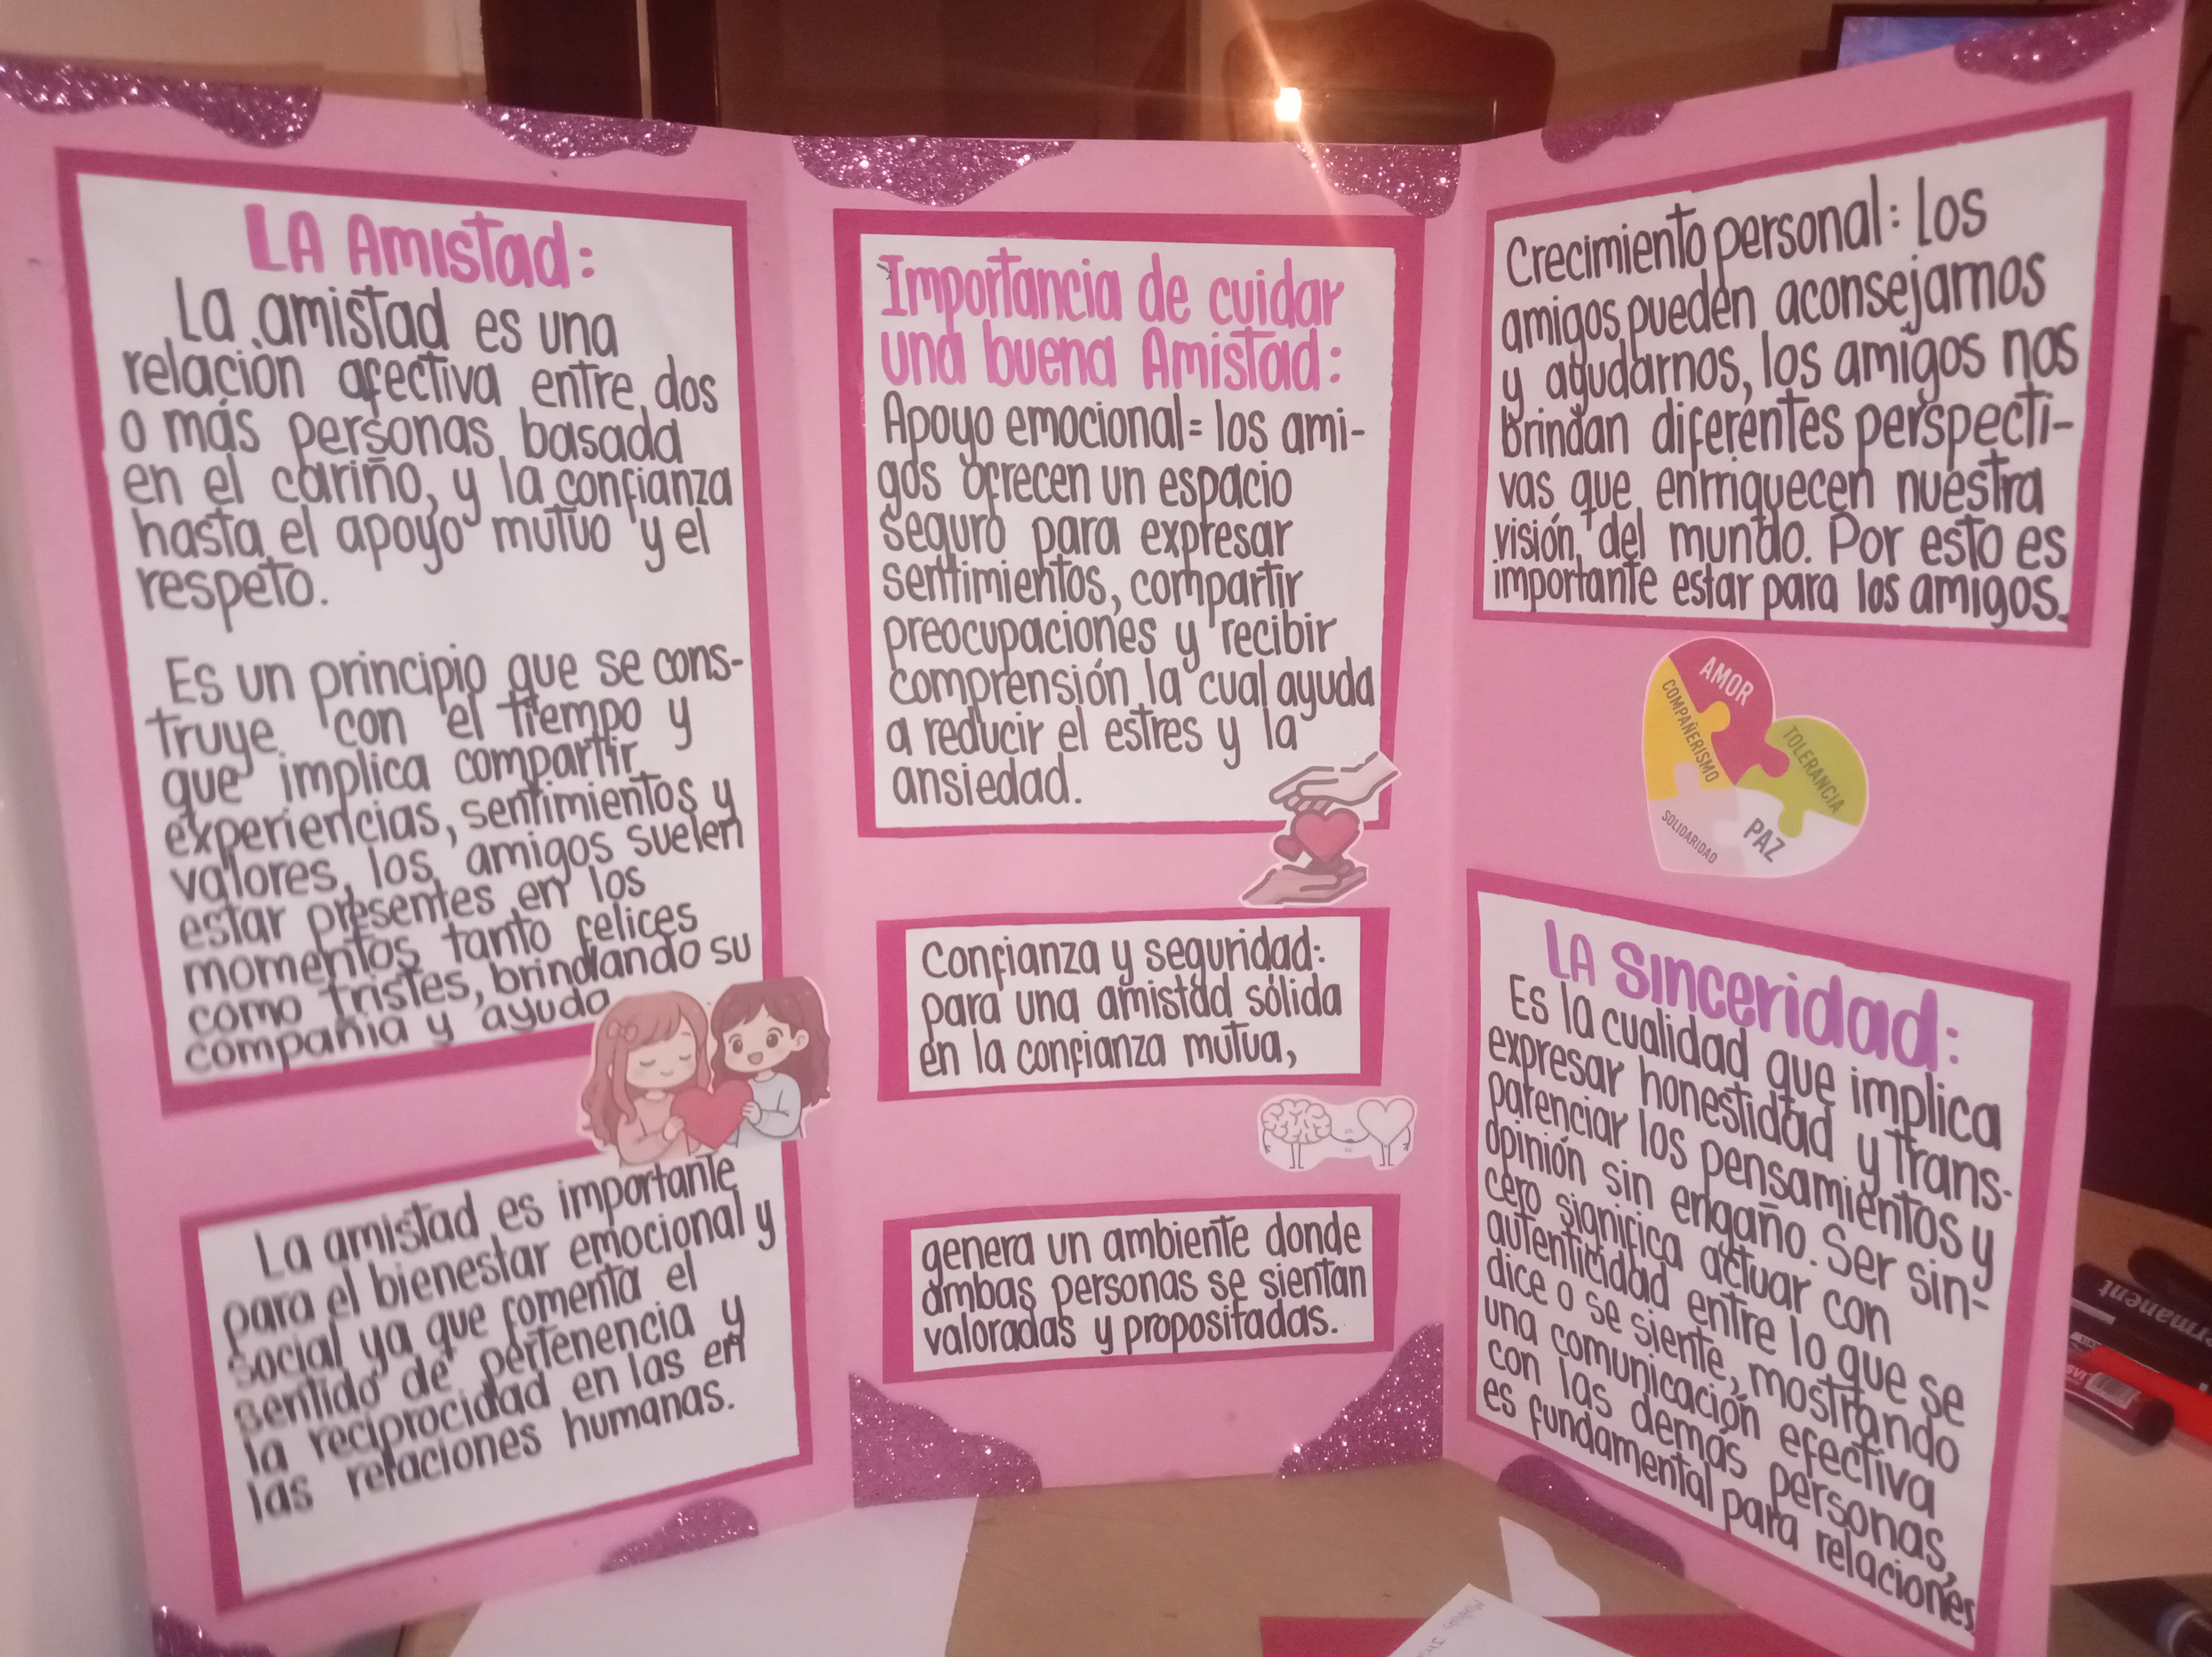 LA Amistad:
La amistad es una
relación afectiva entre dos
o más personas basada
en el cariño, y la confianza
hasta el apoyo mutuo y el
respeto.
Es un principio que se cons-
truye con el tiempo y
que implica compartir
experiencias, sentimientos y
valores, los amigos suelen
estar presentes en los
momentos tanto felices
como tristes, brindando su
compañia y ayuda
La amistad es importante
para el bienestar emocional y
social ya que fomenta el
sentido de pertenencia y
la reciprocidad en las en
las relaciones humanas.
Importancia de cuidar
una buena Amistad:
Apoyo emocional= los ami-
gos ofrecen un espacio
seguro para expresar
sentimientos, compartir
preocupaciones y recibir
comprensión la cual ayuda
a reducir el estres y la
ansiedad.
Confianza y seguridad:
para una amistad sólida
en la confianza mutua,
genera un ambiente donde
ambas personas se sientan
valoradas y propositadas.
Crecimiento personal: Los
amigos pueden aconsejarnos
y ayudarnos, los amigos nos
brindan diferentes perspecti-
vas que enrriquecen nuestra
visión del mundo. Por esto es
importante estar para los amigos.
AMOR
COMPAÑERISMO
TOLERANCIA
SOLIDARIDAD
PAZ
LA Sinceridad:
Es la cualidad que implica
expresar honestidad y trans-
parenciar los pensamientos y
opinión sin engaño. Ser sin-
cero significa actuar con
autenticidad entre lo que se
dice o se siente, mostrando
una comunicación efectiva
con las demás personas,
es fundamental para relaciones